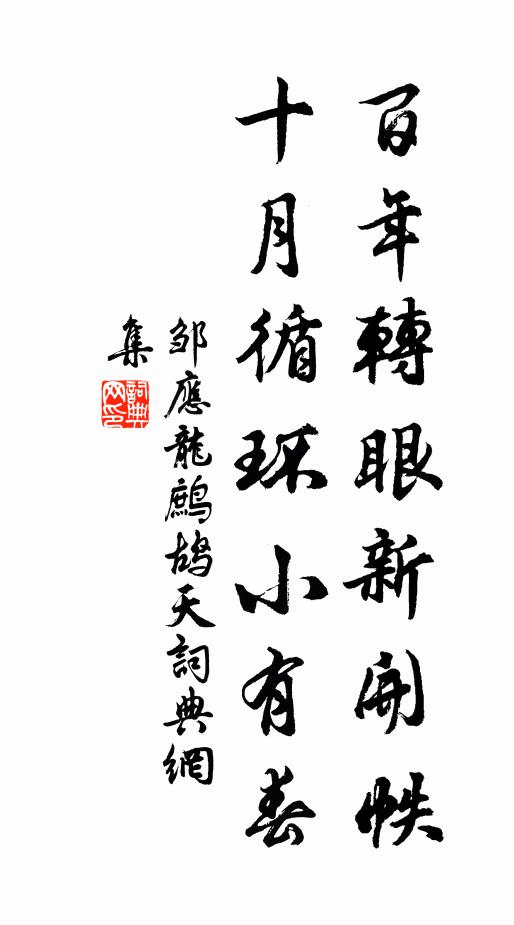 百年轉眼新開帙
十月循环小有春
邹應龍鷓鴣天詞典網
集
詞典网印